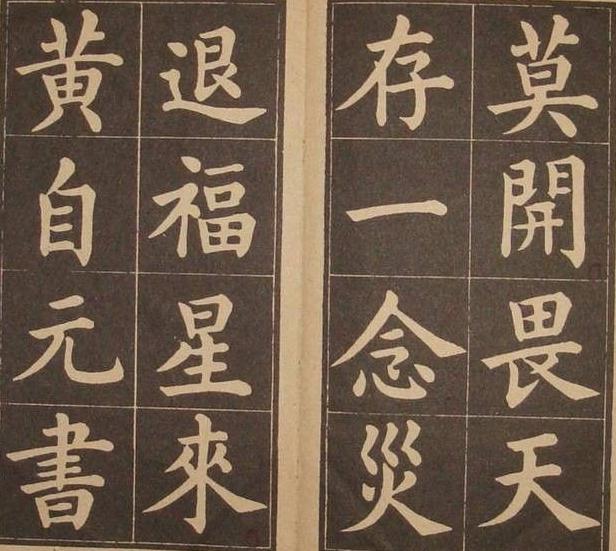 莫開畏天
存一念災
退福星來
黃自元書